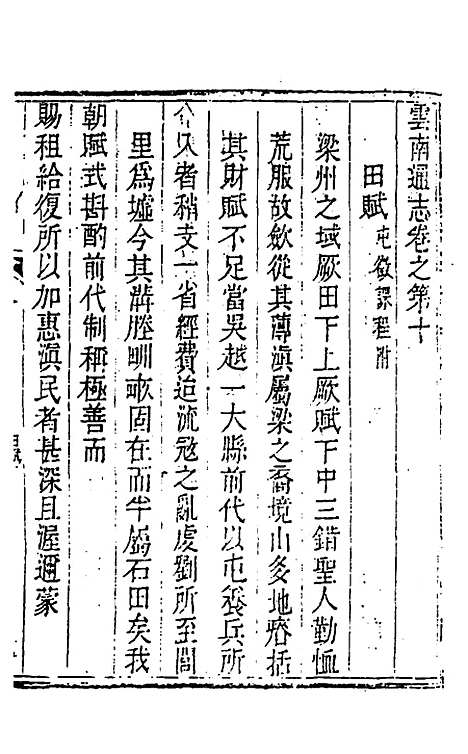 雲南通志卷之第十
田賦 屯徵課程附
梁州之域厥田下上厥賦下中三錯聖人勤恤
荒服故斂從其薄滇屬梁之裔境山多地瘠括
其財賦不足當吳越一大縣前代以屯養兵所
入者稍支一省經費迨流冦之亂虔劉所至閭
里爲墟今其溝塍甽畝固在而半屬石田矣我
朝賦式斟酌前代制稱極善而
賜租給復所以加惠滇民者甚深且渥邇蒙